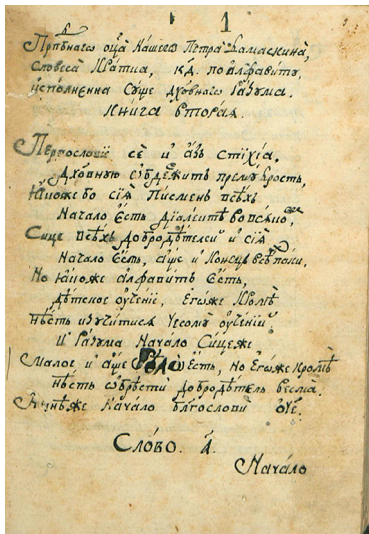 1
Прпбнагѡ оц҃а нашегѡ Петра Дамаскина,
словеса кратка, кд҃. по алфавиту,
исполненна суще дх҃овнагѡ разума.
книга вторая.
Первословїе се и азъ стїхїа.
Духовную содежитъ премудрость,
Якоже бо сїя писменъ всѣхъ
Начало есть
Сице всѣхъ добродѣтелей и сїя
Начало есть, аще и конецъ
Но якоже алфавитъ есть,
дѣтское оученїе, егѡже кромѣ
нѣсть изучитися чесому оученїи
и разума начало сицеже
малое и аще есть, но егѡже кромѣ
нѣсть обрѣсти добродѣтель весма.
Начало бл҃гослови ѻ҃че.
Слово. а҃.
Начало